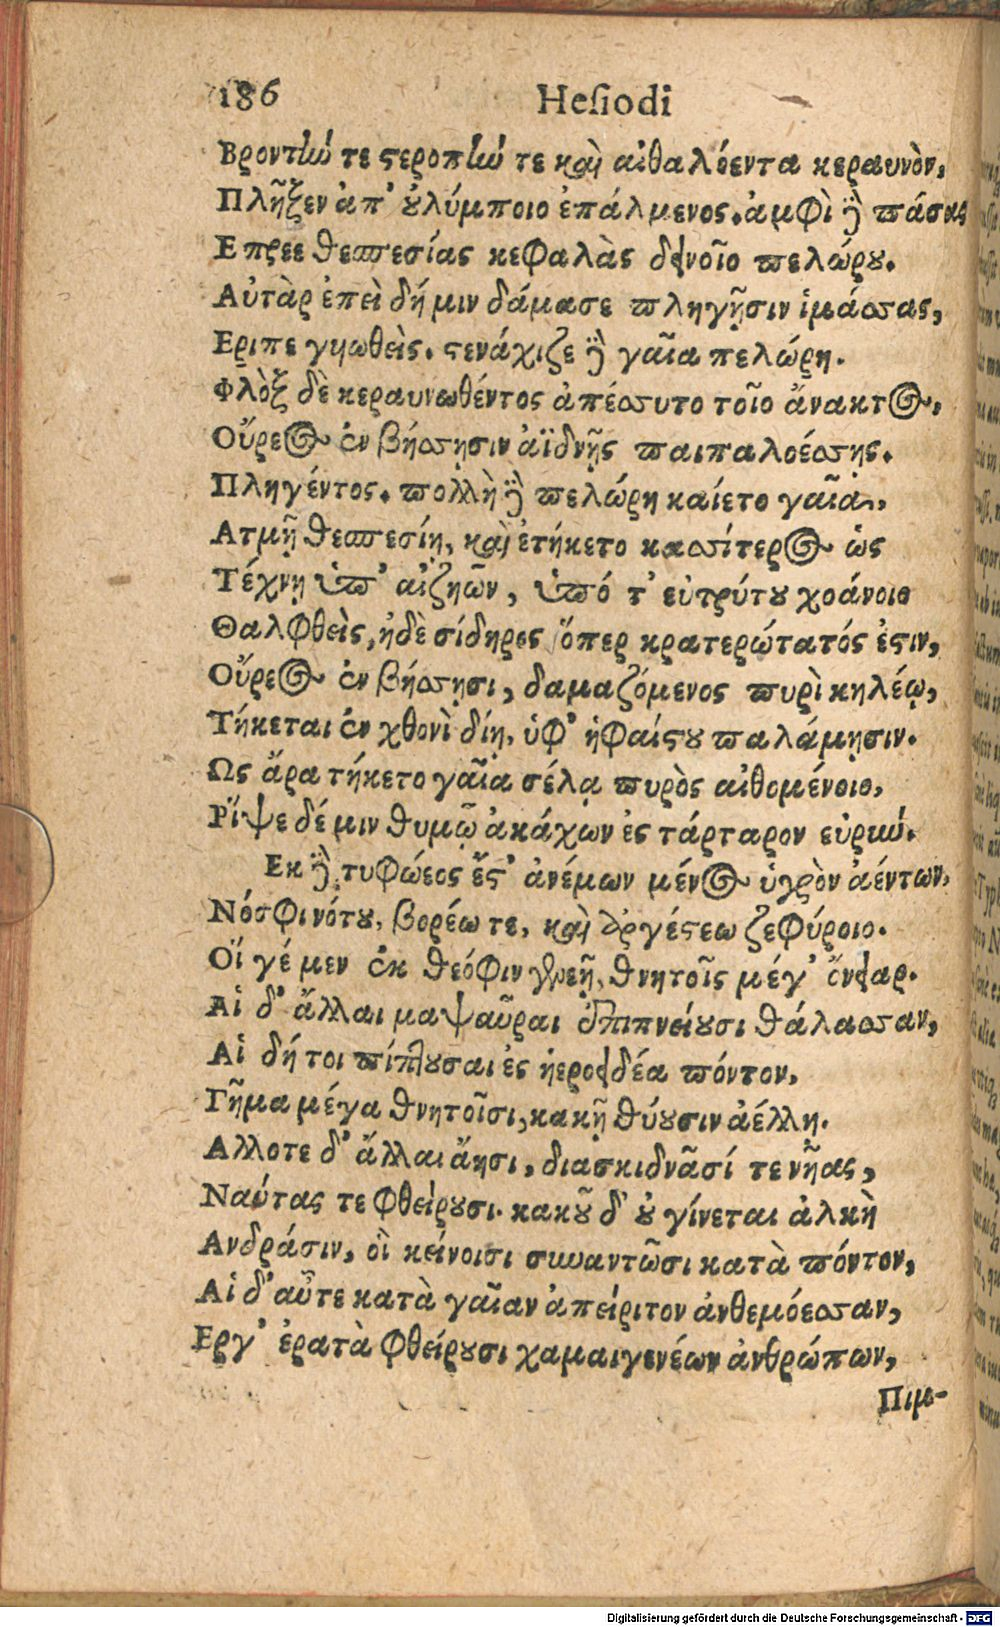 186 Hesiodi
Βροντὴν τε στεροπὴν τε καὶ αἰθαλόεντα κεραυνὸν,
Πλῆξεν ἀπ' οὐλύμποιο ἐπάλμενος. ἀμφὶ δὲ πάσας
Επρεε θεσπεσίας κεφαλὰς δεινοῖο πελώρου.
Αὐτὰρ ἐπεὶ δή μιν δάμασε πληγῇσιν ἱμάσσας,
Εριπε γυιωθεὶς. στενάχιζε δὲ γαῖα πελώρη.
Φλὸξ δὲ κεραυνωθέντος ἀπέσσυτο τοῖο ἄνακτος,
Οὔρεος ἐν βήσσῃσιν ἀϊδνῇς παιπαλοέσσῃς.
Πληγέντος. πολλὴ δὲ πελώρη καίετο γαῖα,
Ατμῇ θεσπεσίῃ, καὶ ἐτήκετο κασσίτερος ὡς
Τέχνῃ ὑπ' αἰζηῶν, ὑπό τ' εὐτρύτου χοάνοιο
Θαλφθεὶς, ἠδὲ σίδηρος ὅπερ κρατερώτατός ἐστιν,
Οὔρεος ἐν βήσσῃσι, δαμαζόμενος πυρὶ κηλέῳ,
Τήκεται ἐν χθονὶ δίῃ, ὑφ' ἡφαίστου παλάμῃσιν.
Ως ἄρα τήκετο γαῖα σέλᾳ πυρὸς αἰθομένοιο,
Ρίψε δέ μιν θυμῷ ἀκάχων ἐς τάρταρον εὐρύν.
Εκ δὲ τυφώεος ἔστ' ἀνέμων μένος ὑγρὸν ἀέντων,
Νόσφι νότου, βορέω τε, καὶ ἀργέστεω ζεφύροιο.
Οἵ γέ μεν ἐκ θεόφιν γενεῇ, θνητοῖς μέγ' ὄνειαρ.
Αἱ δ' ἄλλαι μαψαῦραι ἐπιπνείουσι θάλασσαν,
Αἱ δή τοι πίπτουσαι ἐς ἠεροειδέα πόντον,
Γῆμα μέγα θνητοῖσι, κακῇ θύουσιν ἀέλλῃ.
Αλλοτε δ' ἄλλαι ἄησι, διασκιδνᾶσί τε νῆας,
Ναύτας τε φθείρουσι. κακοῦ δ' οὐ γίνεται ἀλκὴ
Ανδράσιν, οἳ κείνοισι συναντῶσι κατὰ πόντον,
Αἱ δ' αὖτε κατὰ γαῖαν ἀπείριτον ἀνθεμόεσσαν,
Εργ' ἐρατὰ φθείρουσι χαμαιγενέων ἀνθρώπων,
Πιμ-
Digitalisierung gefördert durch die Deutsche Forschungsgemeinschaft - DFG